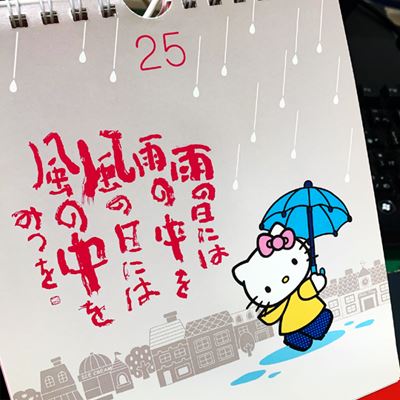 25
雨の日には
雨の中を
風の日には
風の中を
みつを
ICE CREAM